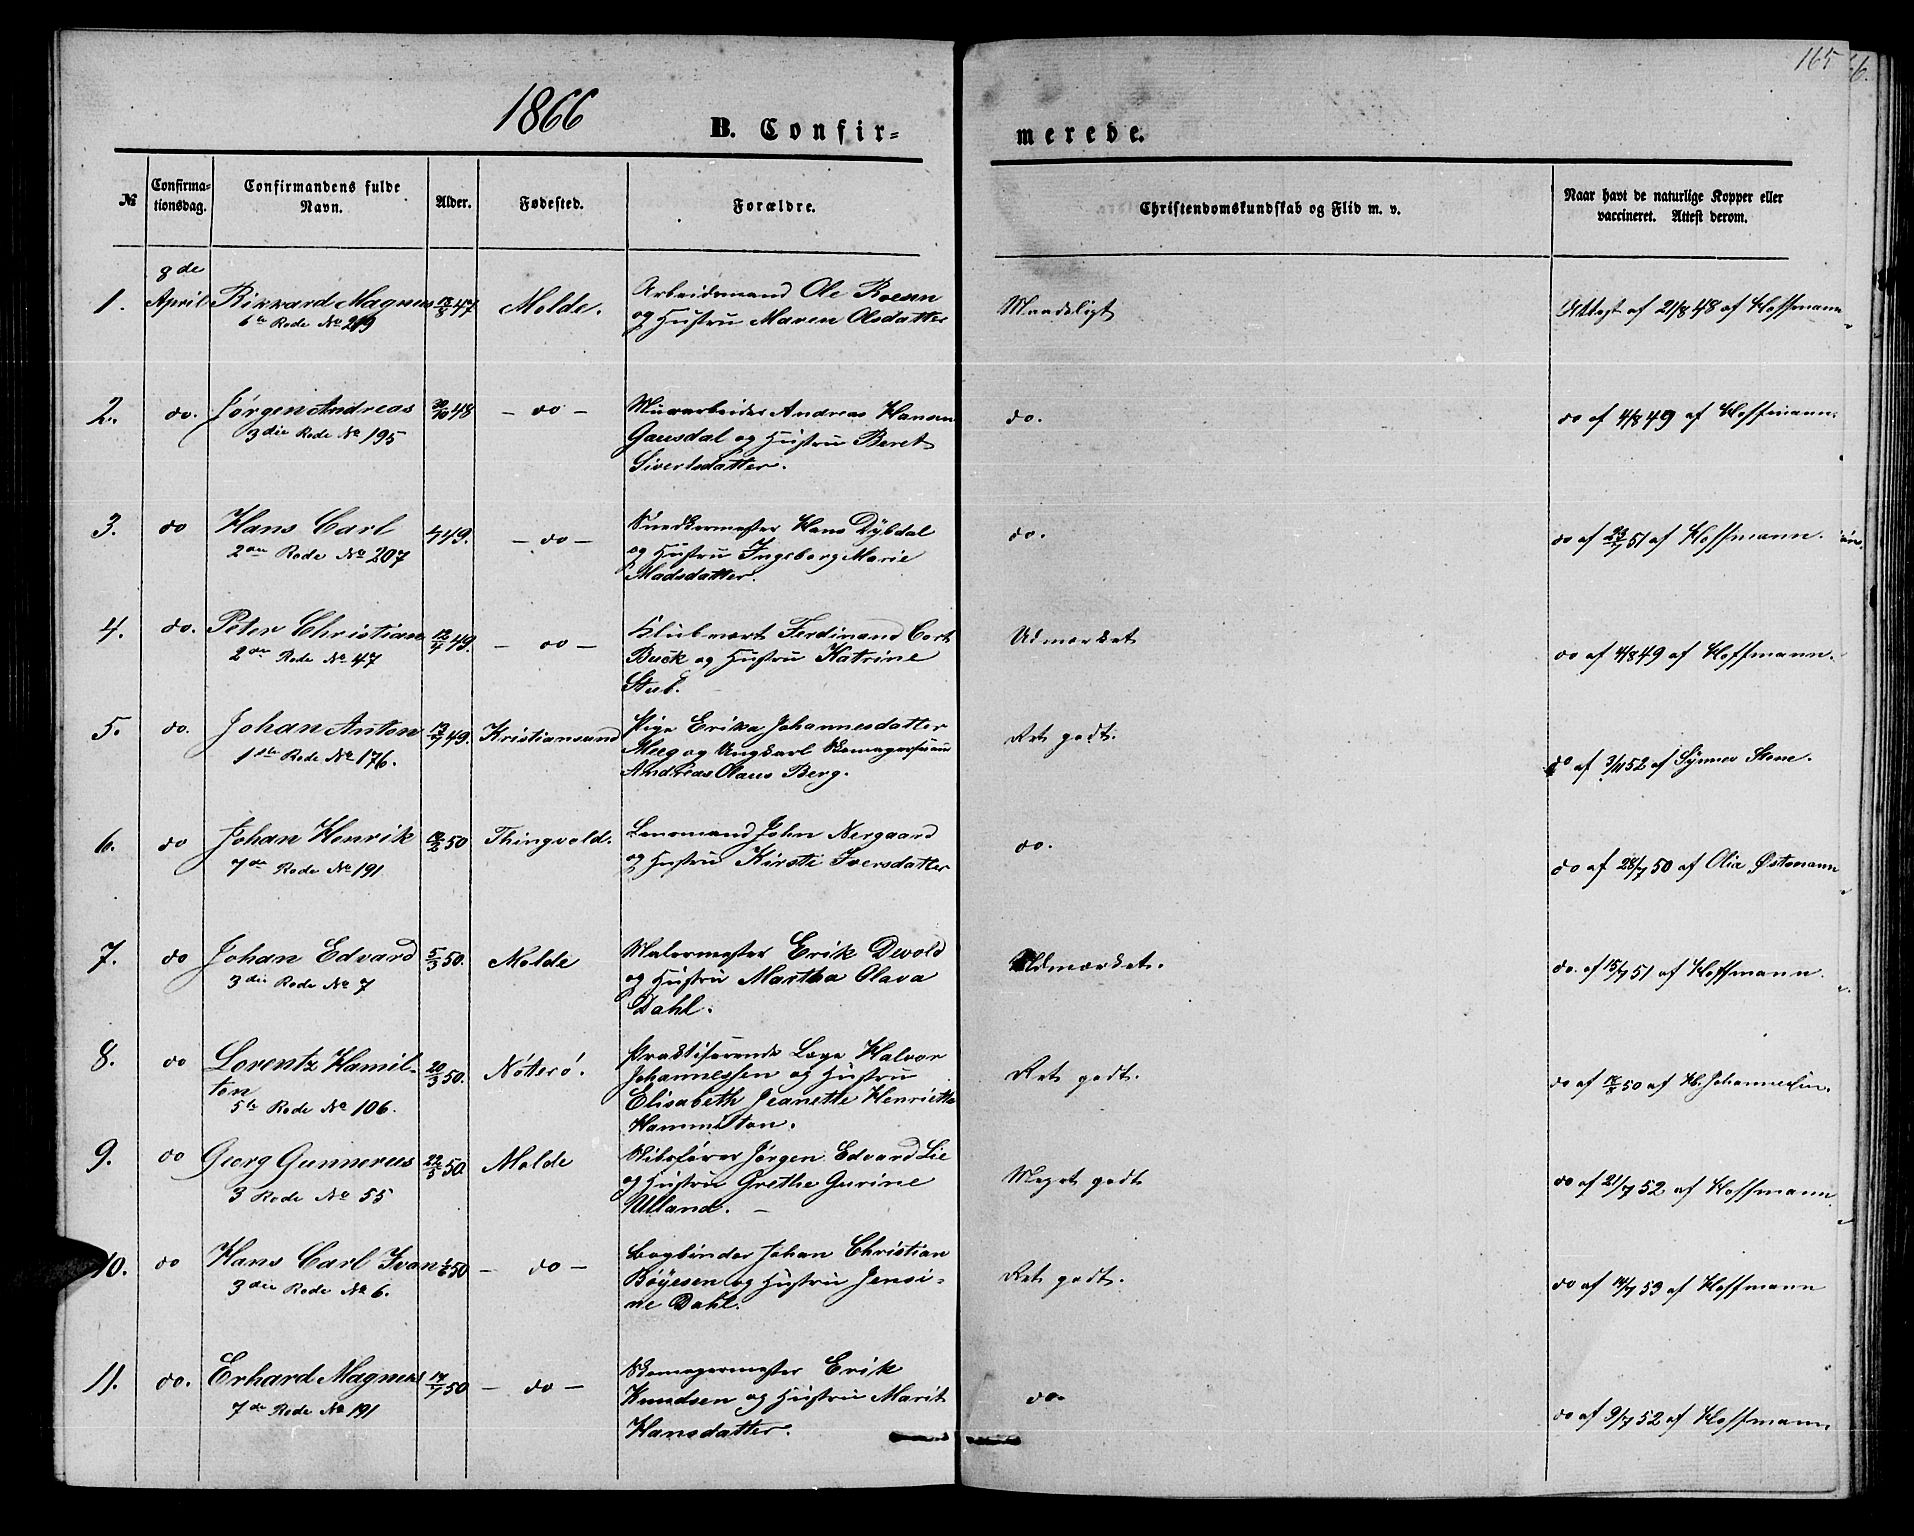 165
6.
1866
B. Confir=
merede.
№
Confirma-
tionsdag.
Confirmandens fulde
Navn.
Alder.
Fødested.
Forældre.
Christendomskundskab og Flid m. v.
Naar havt de naturlige Kopper eller
vaccineret. Attest derom.
1.
8de
April
Rikkard Magnus
6te Rode No 219
47
Molde.
Arbeidsmand Ole Roesen
og Hustru Maren Olsdatter
Maadeligt
Attest af 21/8 48 af Hoffmann
2.
do.
Jørgen Andreas
3die Rode No 195
30/10 48
- do -
Murarbeider Andreas Hansen
Gausdal og Hustru Beret
Sivertsdatter.
do.
do af 4/8 49 af Hoffmann.
3.
do
Hans Carl
2den Rode No 207
49.
- do -
Snedkermester Hans Dybdal
og Hustru Ingeborg Marie
Madsdatter.
do.
do af 51 af Hoffmann.
4.
do.
Peter Christian
2den Rode No 47
49.
- do -
Klubvært Ferdinand Cort
Buck og Hustru Katrine
Stub.
Udmærket
do af 4/8 49 af Hoffmann.
5.
do.
Johan Anton
1ste Rode No 176.
49.
Kristiansund
Pige Erika Johannesdatter
Meeg og Ungkarl Skomagersvend
Andreas Olaus Berg.
Ret godt.
do af 3/11 52 af Synnev Stene.
6.
do
Johan Henrik
7de Rode No 191
50
Thingvold.
Lensmand John Nergaard
og Hustru Kirsti Iversdatter
do.
do af 28/7 50 af Olia Østmann
7.
do
Johan Edvard
3die Rode No 7
5/3 50.
Molde
Malermester Erik Devold
og Hustru Martha Olava
Dahl.
Udmærket.
do. af 15/7 51 af Hoffmann.
8.
do
Lorentz Hamil-
ton
5te Rode No 106.
20/3 50.
Nøterø.
Praktiserende Læge Halvor
Johannessen og Hustru
Elisabeth Jeanette Henriette
Hammilton.
Ret godt.
do af 50 af H. Johannessen.
9.
do
Georg Gunnerus
3 Rode No 55
22/5 50.
Molde
Skibsfører Jørgen Edvard Lie
og Hustru Grethe Gurine
Ulland. -
Meget godt
do af 21/7 52 af Hoffmann.
10.
do
Hans Carl Ivan
3die Rode No 6.
50
- do -
Bogbinder Johan Christian
Bøyesen og Hustru Jensi-
ne Dahl.
Ret godt.
do af 14/7 53 af Hoffmann
11.
do.
Erhard Magnus
7de Rode No 191
17/7 50
- do -
Skomagermester Erik
Knudsen og Hustru Marit
Hansdatter.
do.
do af 9/7 52 af Hoffmann.